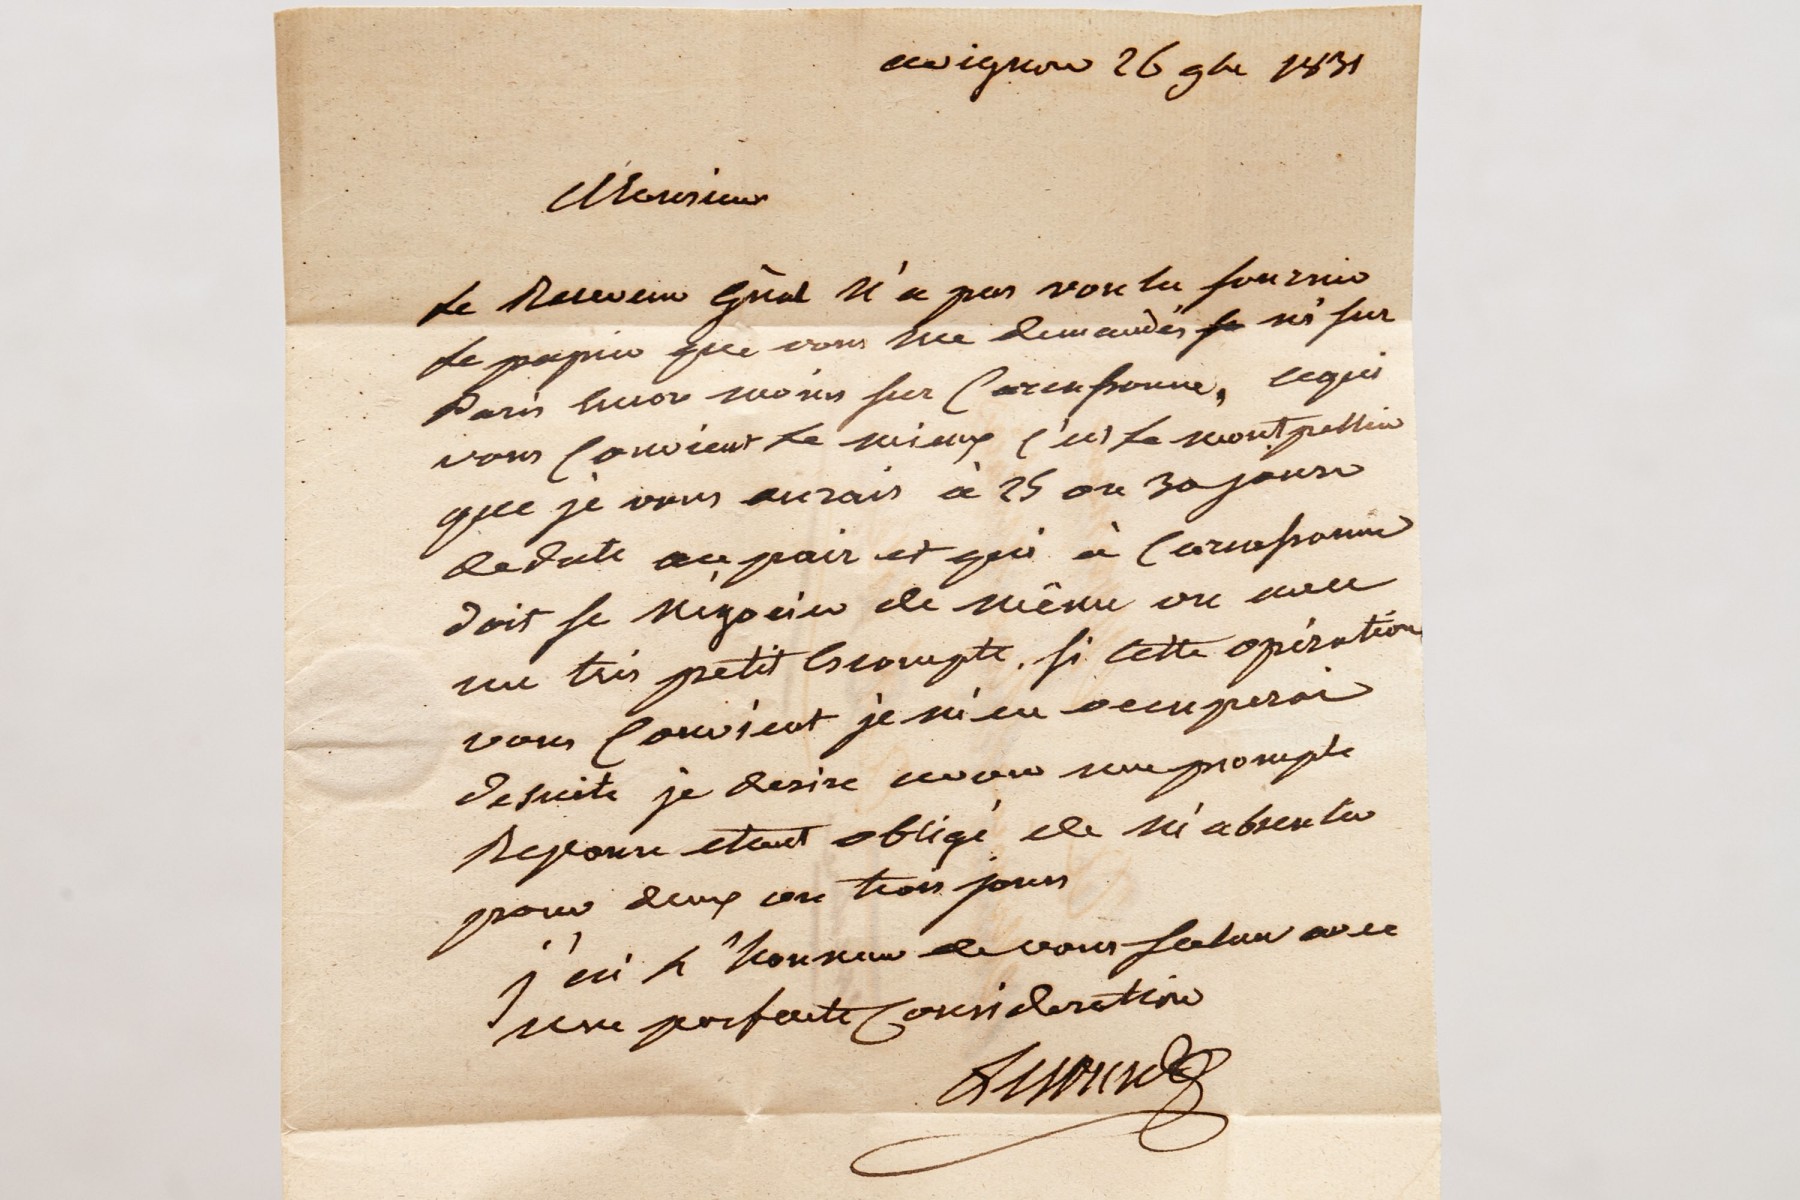 avignon 26 9bre 1831
Monsieur
Le Receveur Gñal n'a pas voulu fournir
le papier que vous me demandés ni sur
Paris encor moins sur Carcassonne, cequi
vous Convient le mieux C'est le montpellier
que je vous aurais à 25 ou 30 jours
dedate au pair et qui à Carcassonne
doit se négocier de même ou avec
un très petit Escompte. si cette opération
vous Convient je m'en occuperai
desuite je desire avoir une prompte
Reponse etant obligé de m'absenter
pour deux ou trois jours
j'ai l'honneur de vous saluer avec
une parfaite Consideration